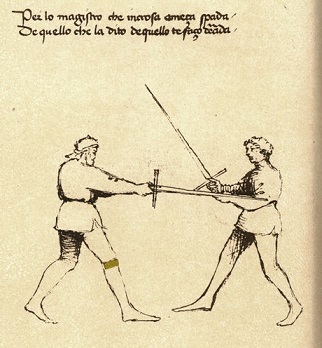 Per lo magistro che incrosa a meza spada
De quello che la dito de quello te faço